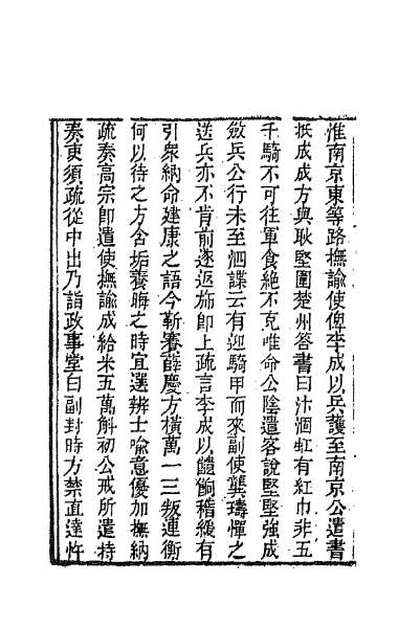 惟南京東等路撫諭使俾李成以兵護至南京公遣書
抵成成方與耿堅圍楚州答書曰汴涸虹有紅巾非五
千騎不可往軍食絶不克唯命公陰遣客說堅堅強成
斂兵公行未至泗諜云有迎騎甲而來副使龔璹憚之
送兵亦不肯前遂返斾即上疏言李成以饋餉稽緩有
引衆納命建康之語今靳賽薛慶方橫萬一三叛連衡
何以待之方含垢養晦之時宜選辨士喻意優加撫納
疏奏高宗即遣使撫諭成給米五萬斛初公戒所遣持
奏吏須疏從中出乃詣政事堂白副封時方禁直達忤